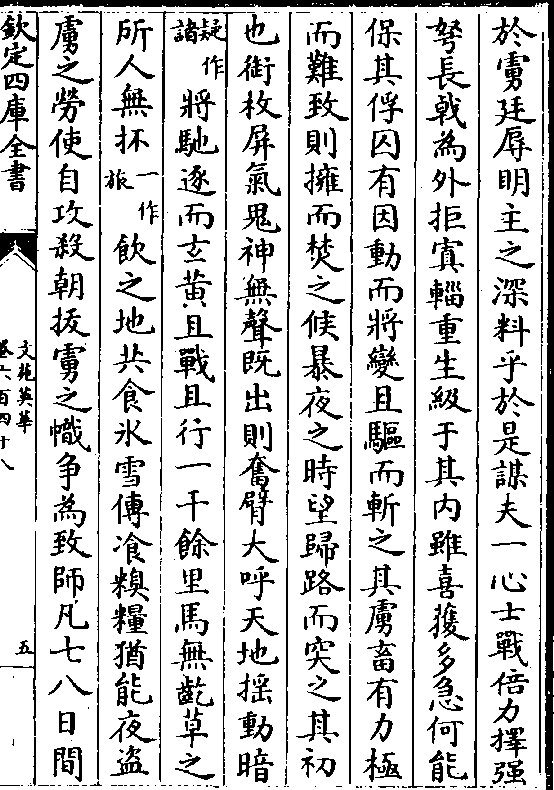 於雩廷辱明主之深料乎於是謀夫一心士戰倍力擇强
弩長戟為外拒寘輜重生級于其內雖喜獲多急何能
保其俘囚有因動而將變且驅而斬之其虜畜有力極
而難致則擁而焚之候暴夜之時望歸路而突之其初
也銜枚屏氣鬼神無聲既出則奮臂大呼天地揺動暗
疑作諸將馳逐而玄黄且戰且行一千餘里馬無齕草之
所人無抔一作旅飲之地共食氷雪傳飡糗糧猶能夜盗
虜之勞使自攻殺朝拔雩之幟争為致師凡七八日間
欽定四庫全書
文苑英華
卷六百四十八
五